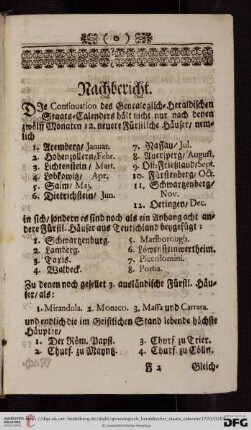 (o)
Nachbericht.
Die Continuation des Genealogisch-Heraldischen
Staats-Calenders hält nicht nur nach denen
zwölff Monaten 12. neuere Fürstliche Häuser/ nem-
lich
1. Aremberg/ Januar.
2. Hohenzollern/Febr.
3. Lichtenstein/ Mart.
4. Lobkowitz/ Apr.
5. Salm/ Maj.
6. Dietrichstein/ Jun.
7. Nassau/ Jul.
8. Auersperg/ August.
9. Ost-Frießland/Sept.
10. Fürstenberg/ Oct.
11. Schwartzenberg/
Nov.
12. Oetingen/ Dec.
in sich/ sondern es sind noch als ein Anhang acht an-
dere Fürstl. Häuser aus Teutschland beygefügt:
1. Schwartzenburg.
2. Lamberg.
3. Taxis.
4. Waldeck.
5. Marlborough.
6. Löwensteinwertheim.
7. Piccolomini.
8. Portia.
Zu denen noch gesellet 3. ausländische Fürstl. Häu-
ser/ als:
1. Mirandula. 2. Monaco. 3. Massa und Carrara.
und endlich die im Geistlichen Stand lebende höchste
Häupter/
1. Der Röm. Papst.
2. Churf. zu Mayntz.
3. Churf. zu Trier.
4. Churf. zu Cölln.
F 2
Gleich-
DFG